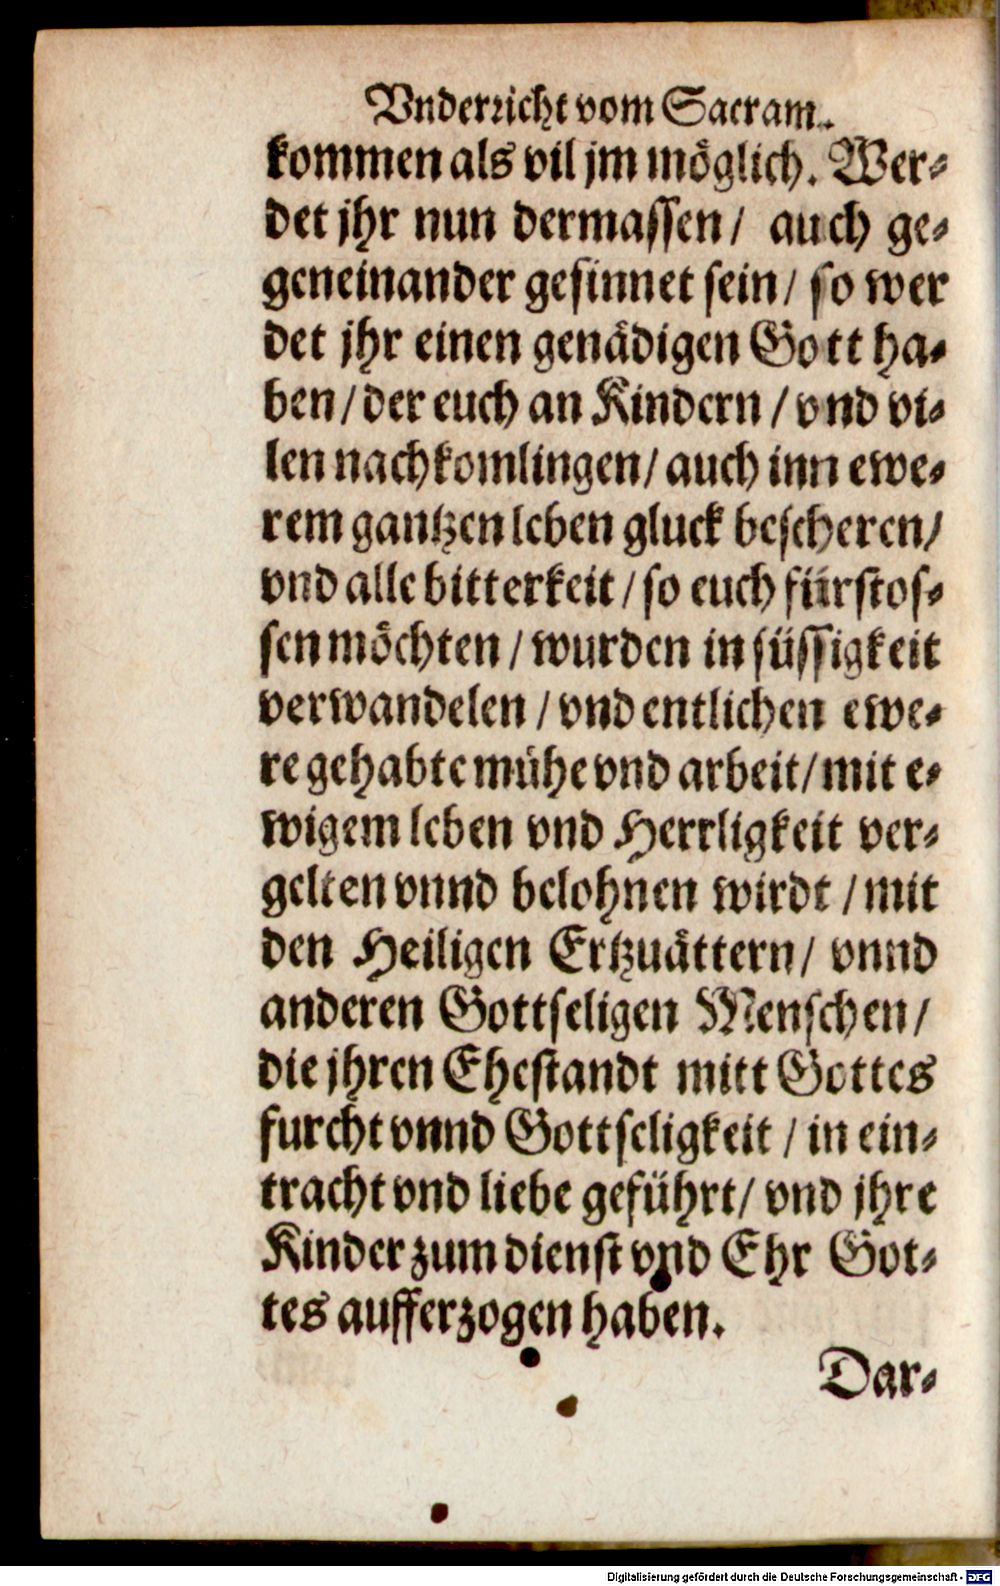 Vnderricht vom Sacram.
kommen als vil jm möglich. Wer-
det jhr nun dermassen / auch ge-
geneinander gesinnet sein / so wer
det jhr einen genädigen Gott ha-
ben / der euch an Kindern / vnd vi-
len nachkomlingen / auch inn ewe-
rem gantzen leben gluck bescheren /
vnd alle bitterkeit / so euch fürstos-
sen möchten / wurden in süssigkeit
verwandelen / vnd entlichen ewe-
re gehabte mühe vnd arbeit / mit e-
wigem leben vnd Herrligkeit ver-
gelten vnnd belohnen wirdt / mit
den Heiligen Ertzuättern / vnnd
anderen Gottseligen Menschen /
die jhren Ehestandt mitt Gottes
furcht vnnd Gottseligkeit / in ein-
tracht vnd liebe geführt / vnd jhre
Kinder zum dienst vnd Ehr Got-
tes aufferzogen haben.
Dar-
Digitalisierung gefördert durch die Deutsche Forschungsgemeinschaft - DFG